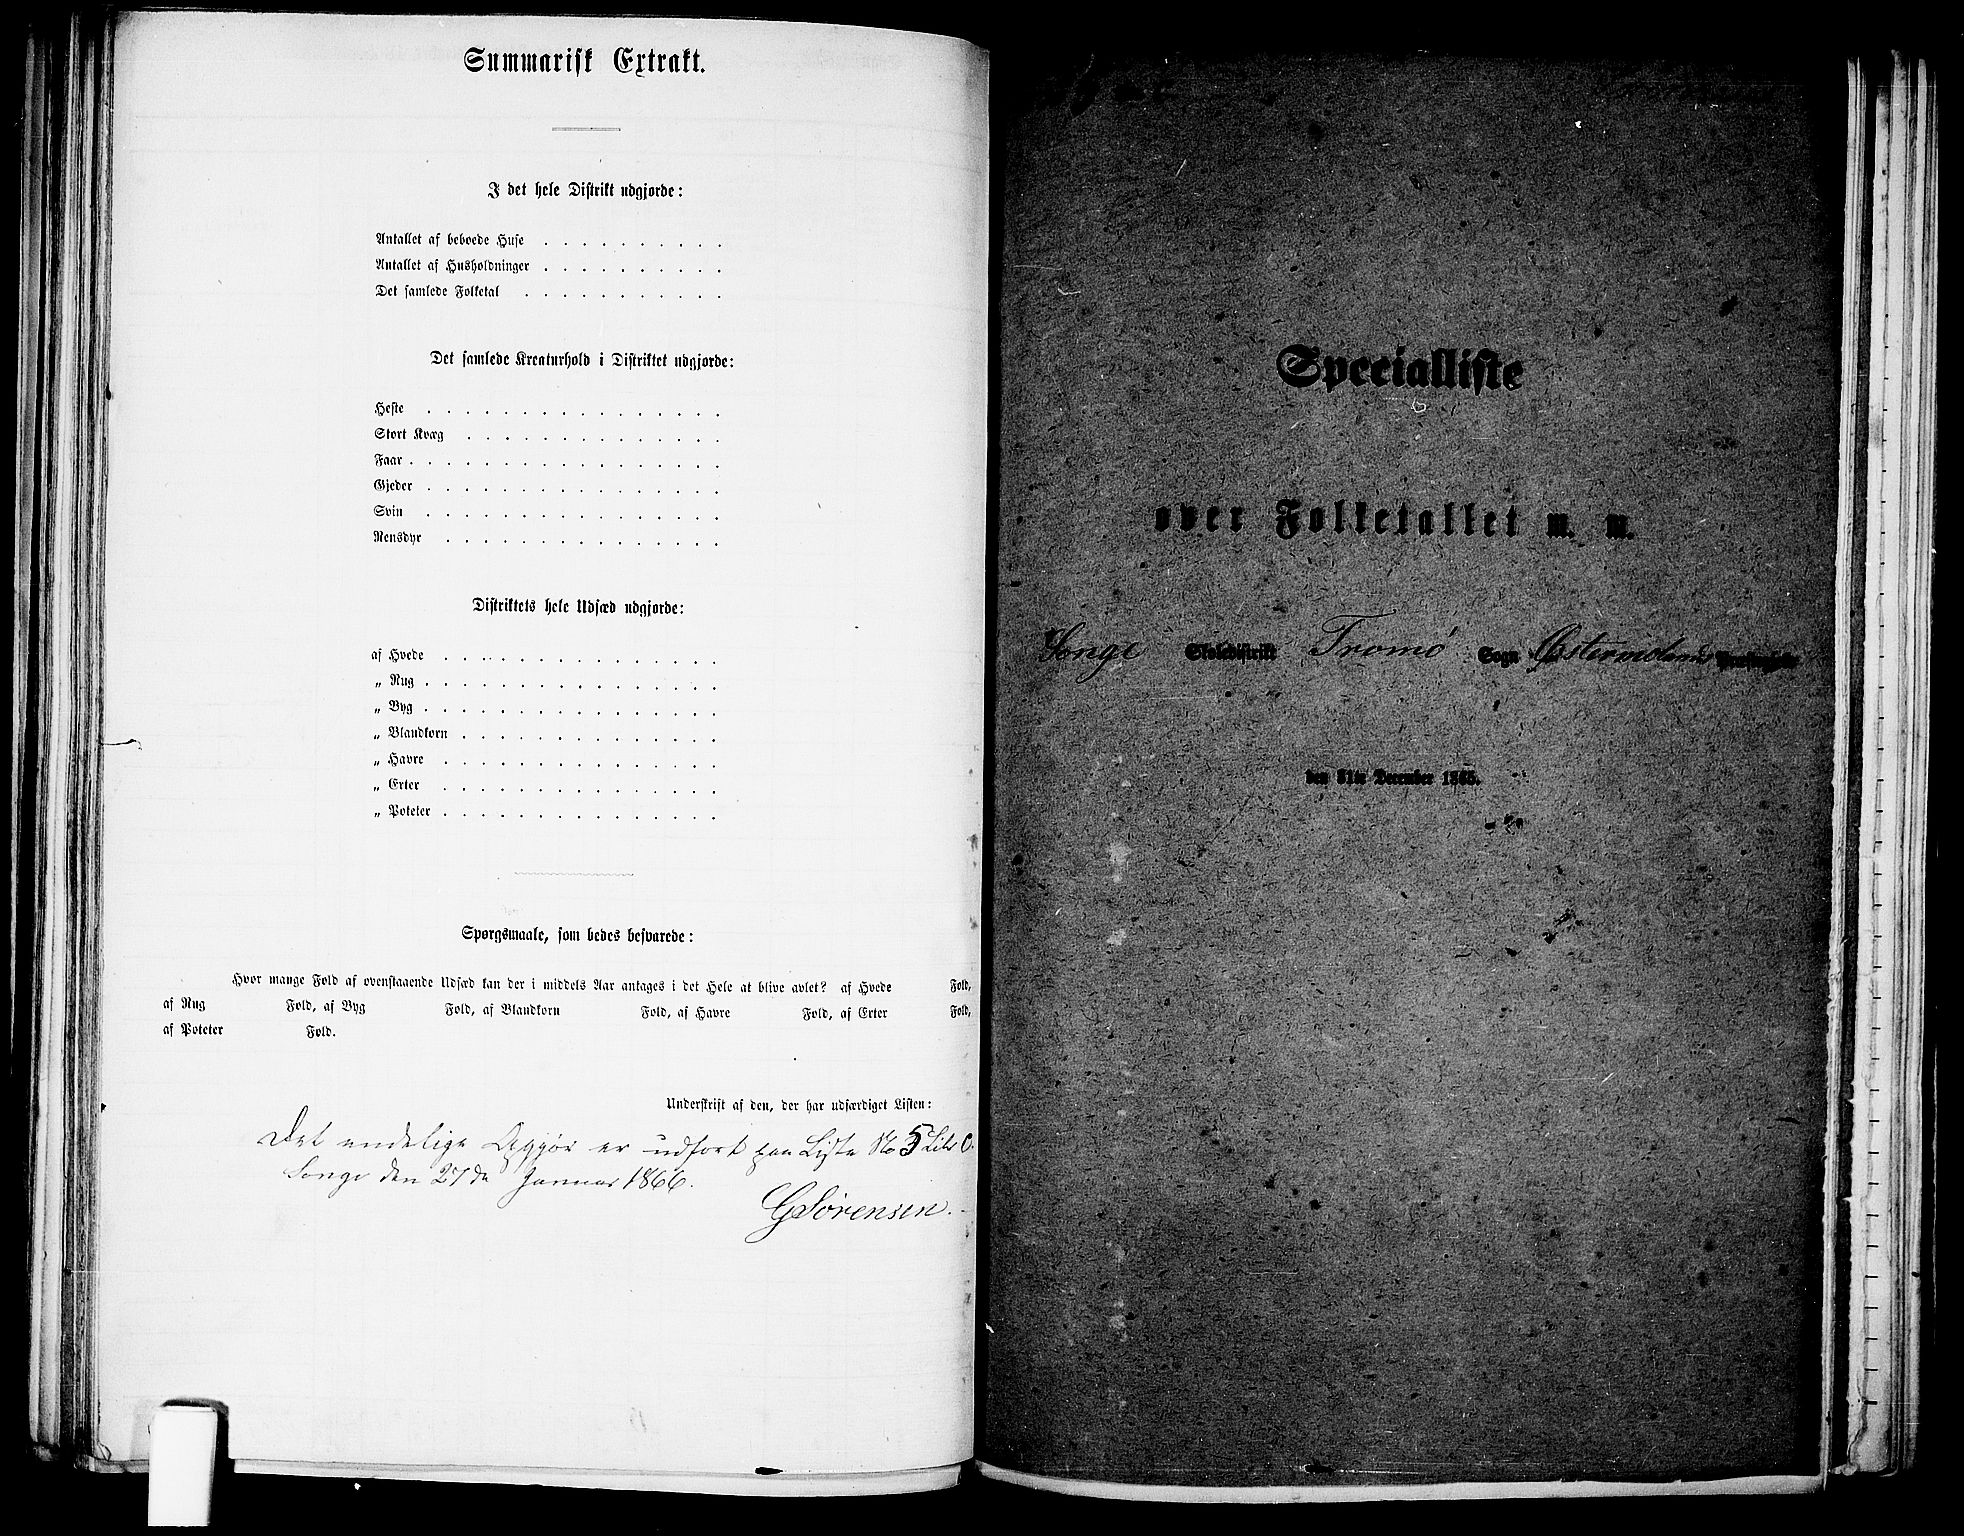 Summarisk Extrakt.
I det hele Distrikt udgjorde:
Antallet af beboede Huse . . . . . . . . . .
Antallet af Husholdninger . . . . . . . . . .
Det samlede Folketal . . . . . . . . . . .
Det samlede Kreaturhold i Distriktet udgjorde:
Heste . . . . . . . . . . . . . . . .
Stort Kvæg . . . . . . . . . . . . . .
Faar . . . . . . . . . . . . . . . . .
Gjeder . . . . . . . . . . . . . . . .
Svin . . . . . . . . . . . . . . . .
Rensdyr . . . . . . . . . . . . . . .
Distriktets hele Udsæd udgjorde:
af Hvede . . . . . . . . . . . . . . .
„ Rug . . . . . . . . . . . . . . . .
„ Byg . . . . . . . . . . . . . . . .
„ Blandkorn . . . . . . . . . . . . . .
„ Havre . . . . . . . . . . . . . . .
„ Erter . . . . . . . . . . . . . . .
„ Poteter . . . . . . . . . . . . . . .
Spørgsmaale, som bedes besvarede:
Hvor mange Fold af ovenstaaende Udsæd kan der i middels Aar antages i det Hele at blive avlet? af Hvede Fold,
af Rug Fold, af Byg Fold, af Blandkorn Fold, af Havre Fold, af Erter Fold,
af Poteter Fold.
Underskrift af den, der har udfærdiget Listen:
Det endelige Opgjør er udført paa Liste No 5 Litr C.
Songe den 27de Januar 1866.
GSørensen.
Specialliste
over Folketallet m. m.
Songe Skoledistrikt Tromø Sogn Østermoland Præstegjeld
den 31te December 1865.